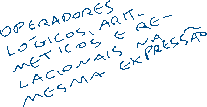 OPERADORES
LÓGICOS, ARIT-
MÉTICOS E RE-
LACIONAIS NA
MESMA EXPRESSÃO